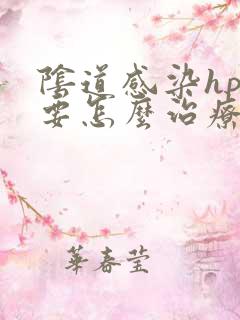 陰道感染hp
要怎麼治療
華春瑩